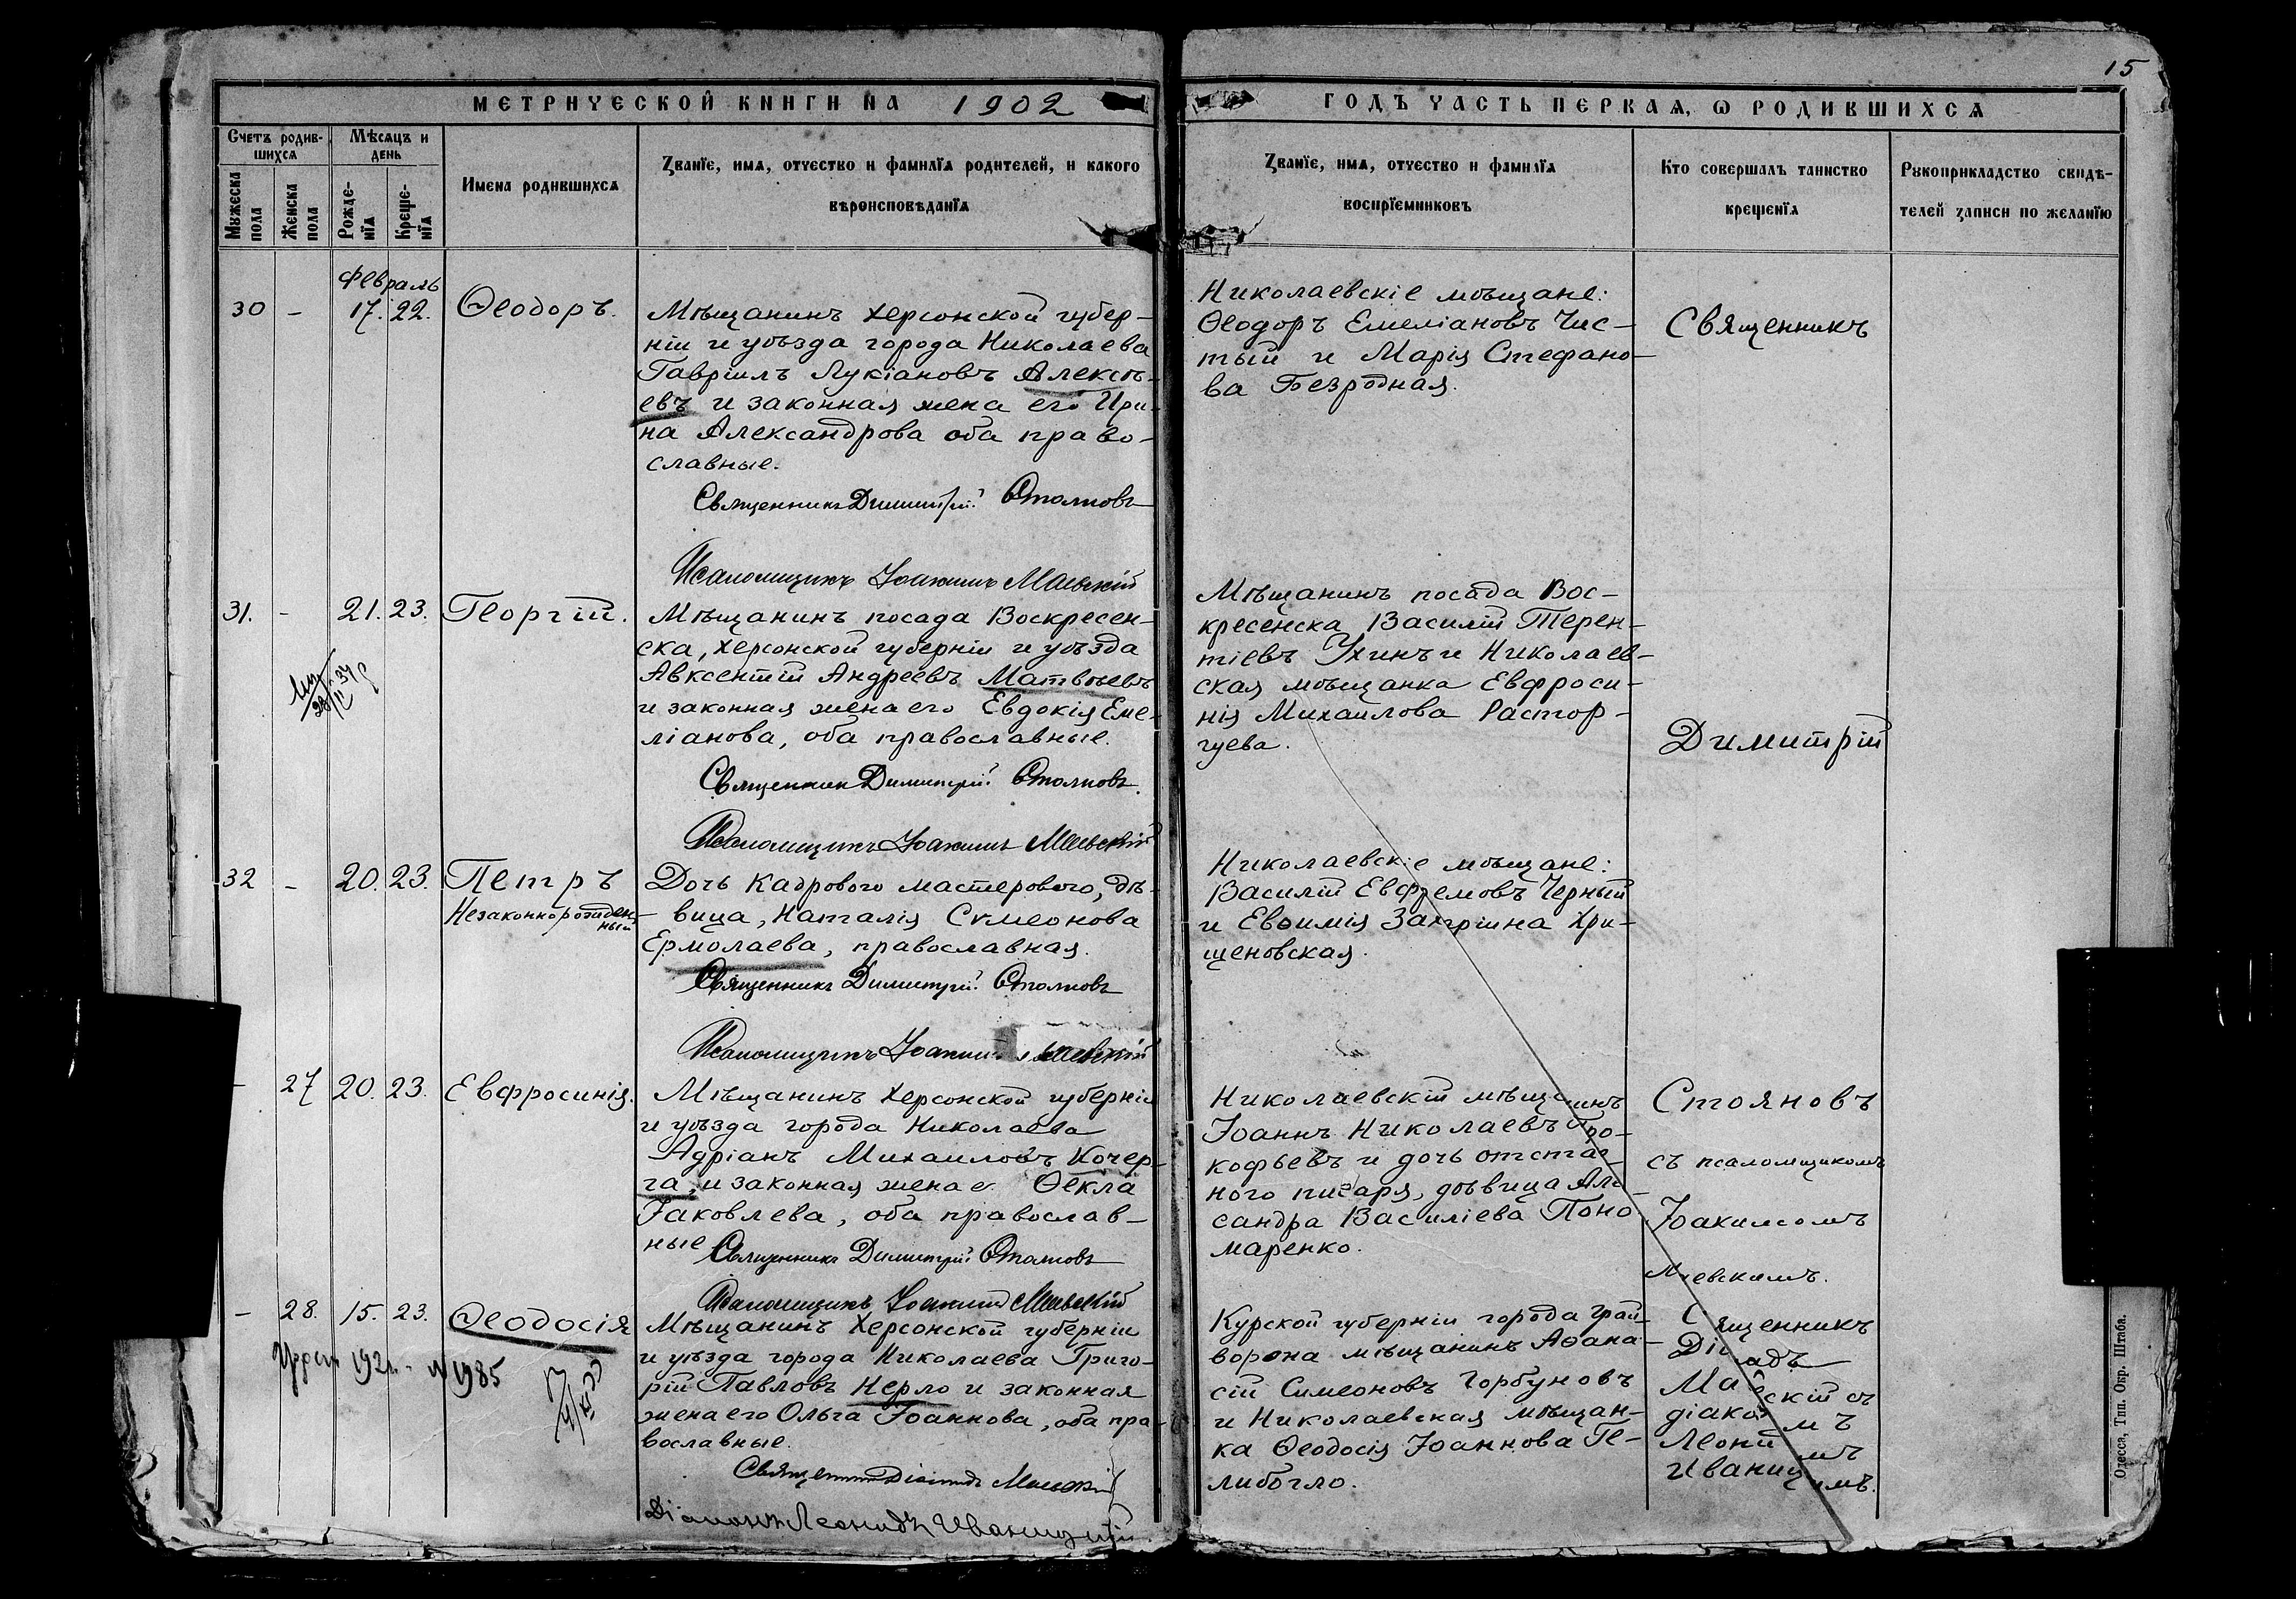 15
МЕТРИЧЕСКОЙ КНИГИ НА 1902
ГОДЪ ЧАСТЬ ПЕРВАЯ, Ѡ РОДИВШИХСѦ
Счетъ родив-
шихсѧ
Мѣсѧцъ и
день
Мужеска
пола
Женска
пола
Рожде-
нїѧ
Креще-
нїѧ
Имена родившихсѧ
Званїе, имѧ, отчество и фамилїѧ родителей, и какого
вѣроисповѣданїѧ
Званїе, имѧ, отчество и фамилїѧ
воспрїемниковъ
Кто совершалъ таинство
крещенїѧ
Рукоприкладство свидѣ-
телей записи по желанїю
Февраль
30 - 17. 22. Ѳеодоръ.
Мѣщанинъ Херсонской губер-
ніи и уѣзда города Николаева
Гавріилъ Лукіановъ Алексѣ-
евъ и законная жена его Ири-
на Александрова оба право-
славные.
Священникъ Димитрій Стояновъ
Псаломщикъ Іоакимъ Маевскій
Николаевскіе мѣщане:
Ѳеодоръ Емеліановъ Чис-
тый и Марія Стефано-
ва Безродная.
Священникъ
31. - 21. 23. Георгій.
Мѣщанинъ посада Воскресен-
ска, Херсонской губерніи и уѣзда
Авксентій Андреевъ Матвѣевъ
и законная жена его Евдокія Еме-
ліанова, оба православные.
Священникъ Димитрій Стояновъ.
Псаломщикъ Іоакимъ Маевскій
Мѣщанинъ посада Вос-
кресенска Василій Терен-
тіевъ Ухинъ и Николаев-
ская мѣщанка Евфроси-
нія Михаилова Растор-
гуева.
Димитрій
32 - 20. 23. Петръ
Незаконнорожден-
ный
Дочь кадрового мастерового, дѣ-
вица, Наталія Сѵмеонова
Ермолаева, православная.
Священникъ Димитрій Стояновъ
Псаломщикъ Іоакимъ Маевскій
Николаевскіе мѣщане:
Василій Евфремовъ Черный
и Евѳимія Захаріина Хри-
щеновская.
- 27 20. 23. Евфросинія.
Мѣщанинъ Херсонской губерніи
и уѣзда города Николаева
Адріанъ Михаиловъ Кочер-
га, и законная жена е Ѳекла
Іаковлева, оба православ-
ные
Священникъ Димитрій Стояновъ
Псаломщикъ Іоакимъ Маевскій
Николаевскій мѣщанинъ
Іоаннъ Николаевъ Про-
кофьевъ и дочь отстав-
ного писаря, дѣвица Але
сандра Василіева Поно
маренко.
Стояновъ
съ псаломщикомъ
Іоакимомъ
Маевскимъ.
- 28. 15. 23. Ѳеодосія
Мѣщанинъ Херсонской губерніи
и уѣзда города Николаева Григо-
рій Павловъ Керло и законная
жена его Ольга Іоаннова, оба пра-
вославные.
Діаконъ Леонидъ Иваницкій.
Курской губерніи города Грай-
ворона мѣщанинъ Аѳана-
сій Симеоновъ Горбуновъ
и Николаевская мѣщан-
ка Ѳеодосія Іоаннова Ге-
либогло.
Священникъ
Маевскій съ
діакономъ
Иваницкимъ.
1921. №1985
Одесса, Тип. Окр. Штаба.